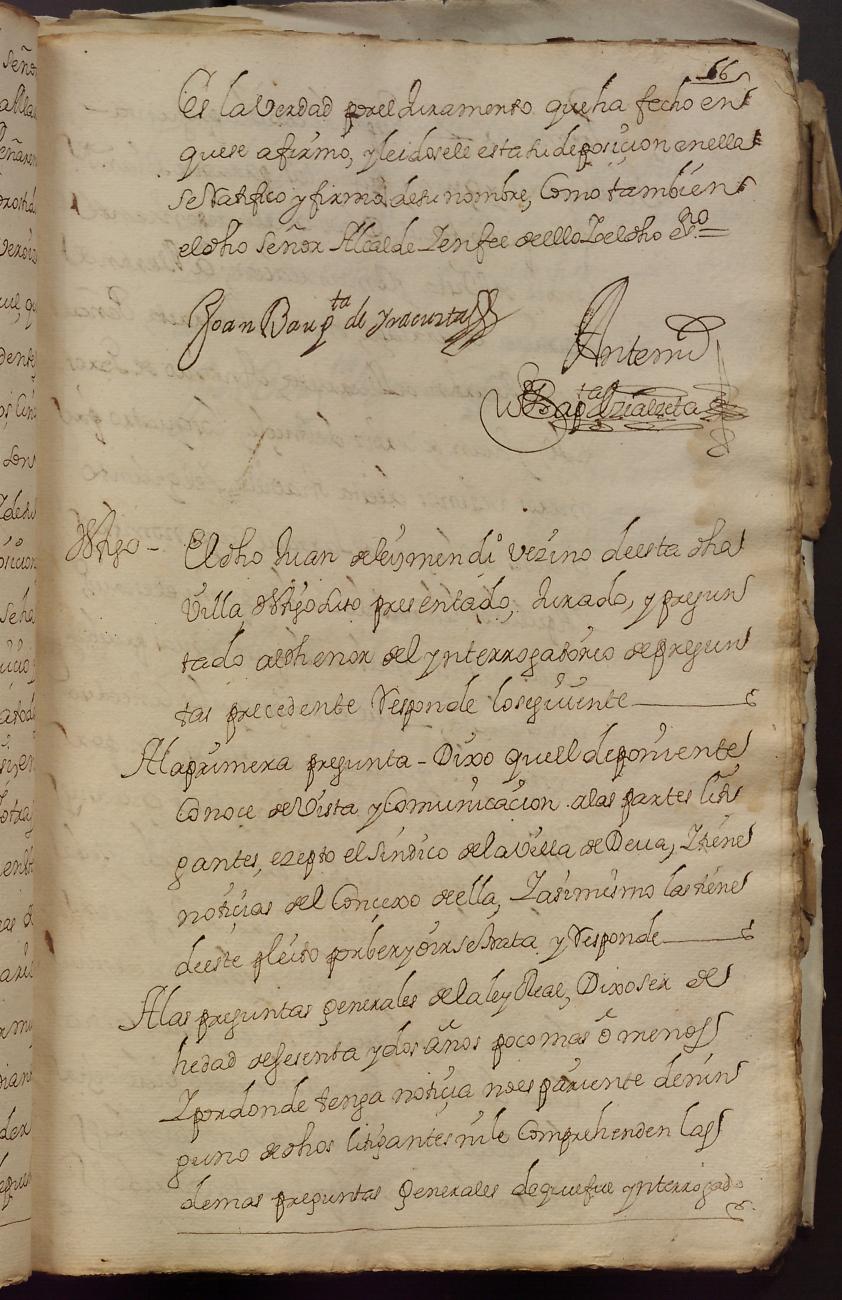 66
Es la Verdad por el Juramento que ha fecho en
que se afirmo, y leidosele esta su deposicion en ella
se Ratifico y firmo de su nombre, Como tambien
el dho Señor Alcalde Y en fee de ello Yo el dho Sno
Joan Baupta de Yraeurta
Antemi
Bapta
tigo - El dho Juan de Leismendi vezino de esta dha
Villa tigo presentado, Jurado, y pregun
tado al thenor del ynterrogatorio de pregun
tas precedente Responde lo seguiente
A la primera pregunta - Dixo que el deponiente
Conoce de Vista y Comunicacion a las partes liti
gantes, ezepto el Sindico de la Villa de Deua, Y tiene
noticias del Concexo de ella, Y asimismo las tiene
de este pleito por ber y oir se trata y Responde
A las preguntas Generales de la ley Real, Dixo ser de
hedad de sesenta y dos años poco mas ô menos
Y por donde tenga noticia no es pariente de nin
guno de dhos litigantes ni le Comprehenden las
demas preguntas Generales de que fue ynterrogado